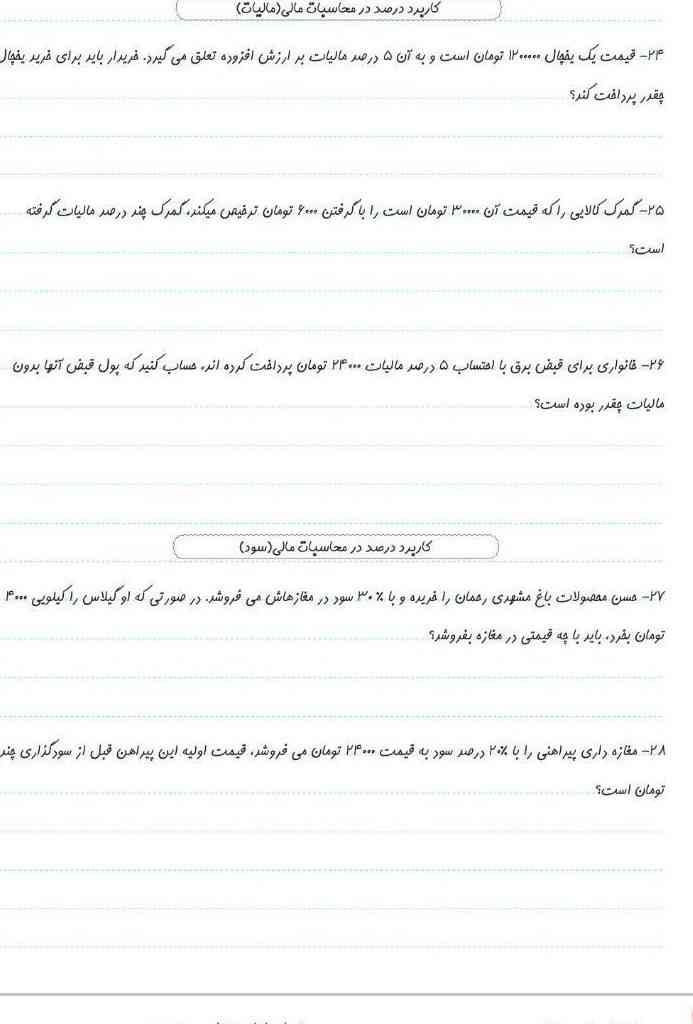 کاربرد درصد در محاسبات مالی(مالیات)
۲۴- قیمت یک یخچال ۱۲۰۰۰۰۰ تومان است و به آن ۵ درصد مالیات بر ارزش افزوده تعلق می گیرد. خریدار باید برای خرید یخچال
چقدر پرداخت کند؟
۲۵- گمرک کالایی را که قیمت آن ۳۰۰۰۰ تومان است را با گرفتن ۶۰۰۰ تومان ترخیص میکند، گمرک چند درصد مالیات گرفته
است؟
۲۶- خانواری برای قبض برق با احتساب ۵ درصد مالیات ۲۴۰۰۰ تومان پرداخت کرده اند، حساب کنید که پول قبض آنها بدون
مالیات چقدر بوده است؟
کاربرد درصد در محاسبات مالی(سود)
۲۷- حسن محصولات باغ مشهدی رحمان را خریده و با ۳۰٪ سود در مغازهاش می فروشد. در صورتی که او گیلاس را کیلویی ۴۰۰۰
تومان بخرد، باید با چه قیمتی در مغازه بفروشد؟
۲۸- مغازه داری پیراهنی را با ۲۰٪ درصد سود به قیمت ۲۴۰۰۰ تومان می فروشد، قیمت اولیه این پیراهن قبل از سودگذاری چند
تومان است؟